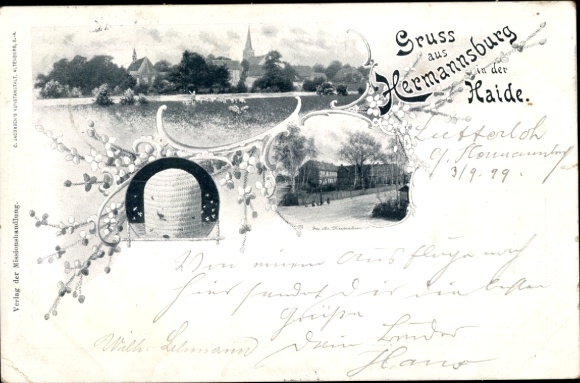 Gruss
aus
Hermannsburg
in der
Haide.
Lutterloh
b/ Hermannsburg
3/9. 99.
C. JACOBSEN'S KUNSTANSTALT, ALTENBURG, S.-A.
Verlag der Missionshandlung.
Von einem Ausfluge nach
hier sendet Dir die besten
Grüße
Dein Bruder
Hans
Wilh. Lehmann